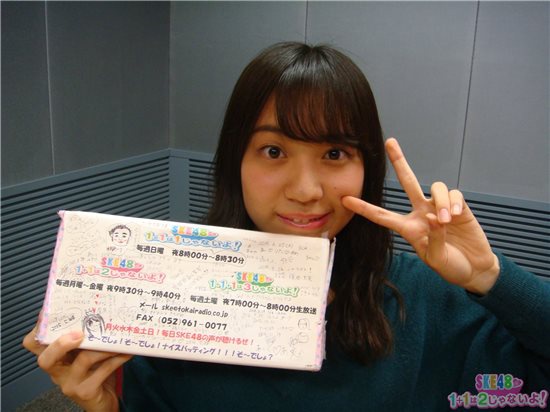 SKE48の
1+1は1じゃないよ!
毎週日曜 夜8時00分~8時30分
SKE48の
1+1は2じゃないよ!
SKE48の
1+1+1は3じゃないよ!
毎週月曜~金曜 夜9時30分~9時40分
毎週土曜 夜7時00分~8時00分生放送
メール ske@tokairadio.co.jp
FAX (052)961-0077
月火水木金土日!毎日SKE48の声が聴けるぜ!
そ~でしょ!そ~でしょ!ナイスバッティング!!!そ~でしょ?
SKE48の
1+1は2じゃないよ!